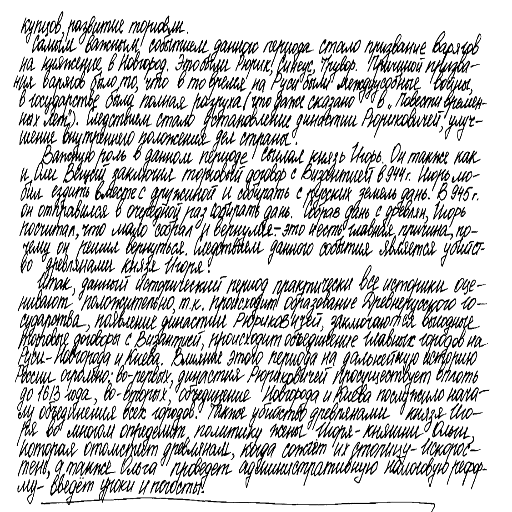 купцов, развитие торговли.
Самым важным событием данного периода стало призвание варягов
на княжение в Новгород. Это были Рюрик, Синеус, Трувор. Причиной призва-
ния варягов было то, что в то время на Руси были междоусобные войны,
в государстве была полная разруха (что даже сказано в „Повести времен-
ных лет"). Следствием стало установление династии Рюриковичей, улуч-
шение внутреннего положения дел страны.
Важную роль в данном периоде сыграл князь Игорь. Он также как
и Олег Вещий заключил торговый договор с Византией в 944 г. Игорь лю-
бил ездить вместе с дружиной и собирать с русских земель дань. В 945 г.
он отправился в очередной раз собирать дань. Собрав дань с древлян, Игорь
посчитал, что мало собрал и вернулся - это и есть главная причина, по-
чему он решил вернуться. Следствием данного события является убийст-
во древлянами князя Игоря.
Итак, данный исторический период практически все историки оце-
нивают положительно, т.к. происходит образование Древнерусского го-
сударства, появление династии Рюриковичей, заключаются выгодные
торговые договоры с Византией, происходит объединение главных городов на
Руси - Новгорода и Киева. Влияние этого периода на дальнейшую историю
России огромно: во-первых, династия Рюриковичей просуществует вплоть
до 1613 года, во-вторых, объединение Новгорода и Киева послужило нача-
лу объединения всех городов. Также убийство древлянами князя Иго-
ря во многом определит политику жены Игоря - княгини Ольги,
которая отомстит древлянам, когда сожжет их столицу - Искорос-
тень, а также Ольга проведет административную налоговую рефор-
му - введёт уроки и погосты.